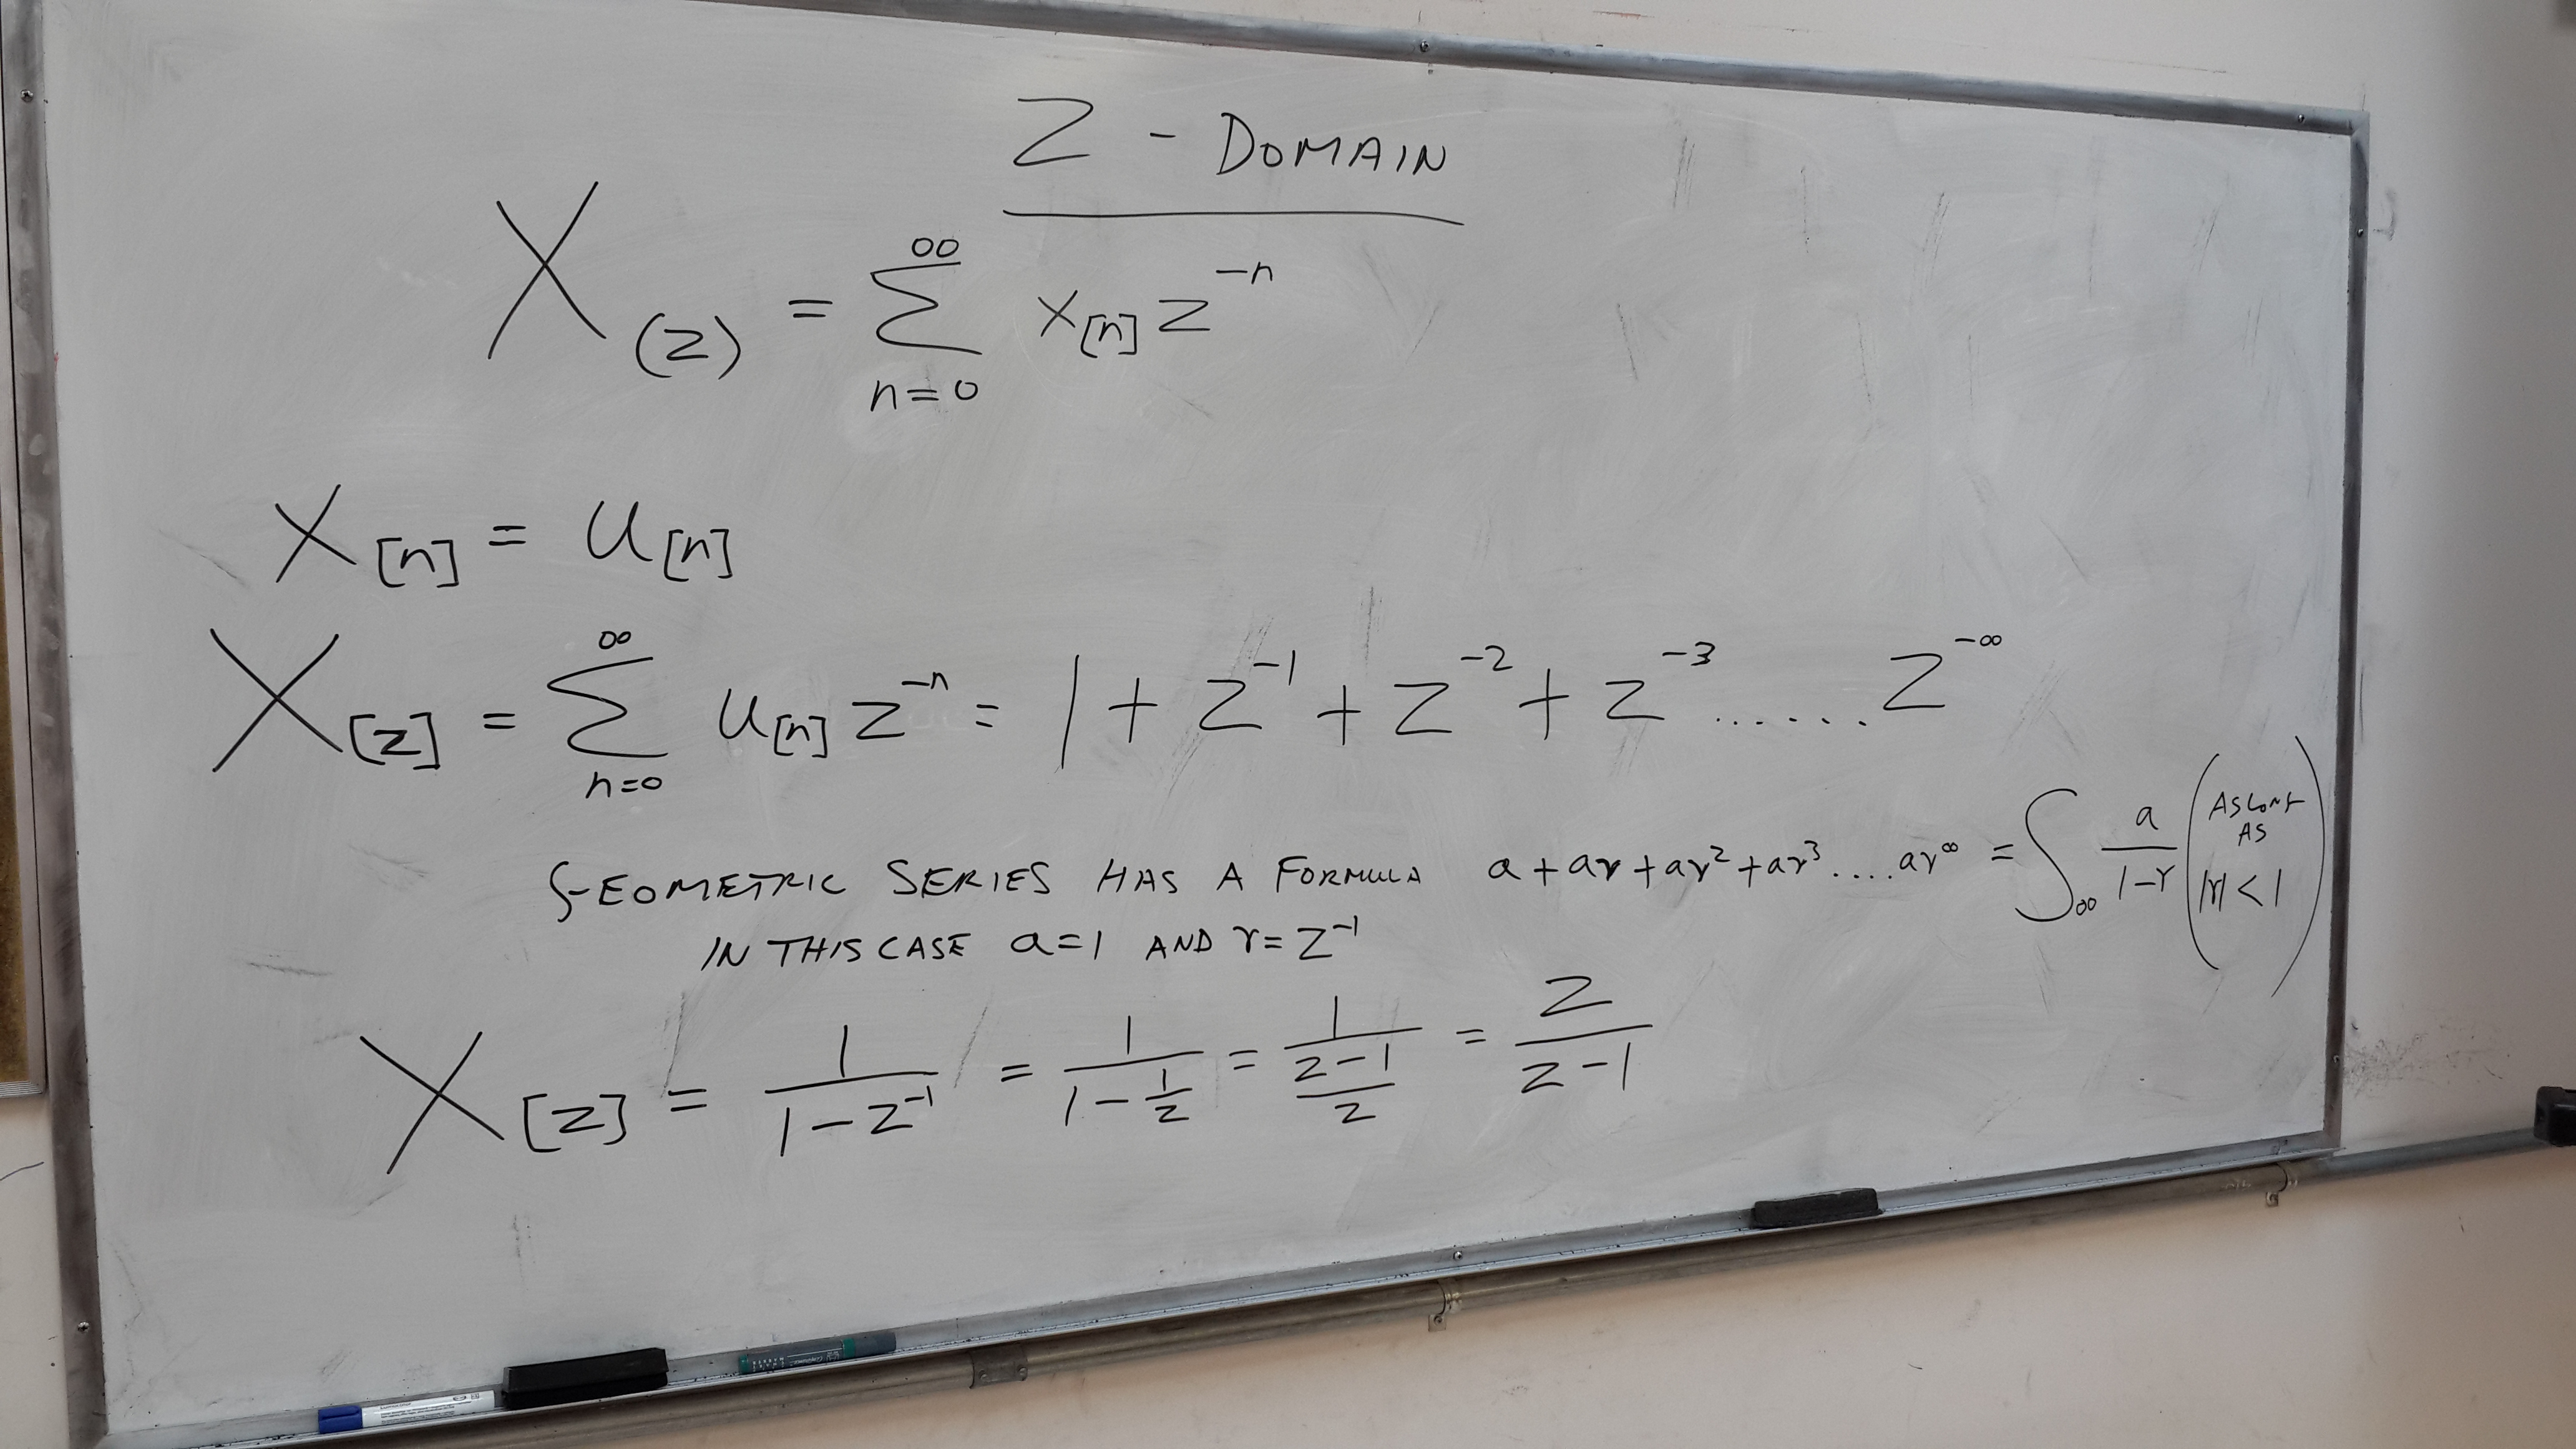 Z - DOMAIN
X(z) = ∞ Σ n=0 x[n] z^-n
x[n] = u[n]
X[z] = ∞ Σ n=0 u[n] z^-n = 1 + z^-1 + z^-2 + z^-3 ...... z^-∞
GEOMETRIC SERIES HAS A FORMULA a + ar + ar^2 + ar^3 .... ar^∞ = S∞ a/(1-r) (AS LONG AS |r| < 1)
IN THIS CASE a=1 AND r= z^-1
X[z] = 1/(1-z^-1) = 1/(1-1/z) = 1/((z-1)/z) = z/(z-1)